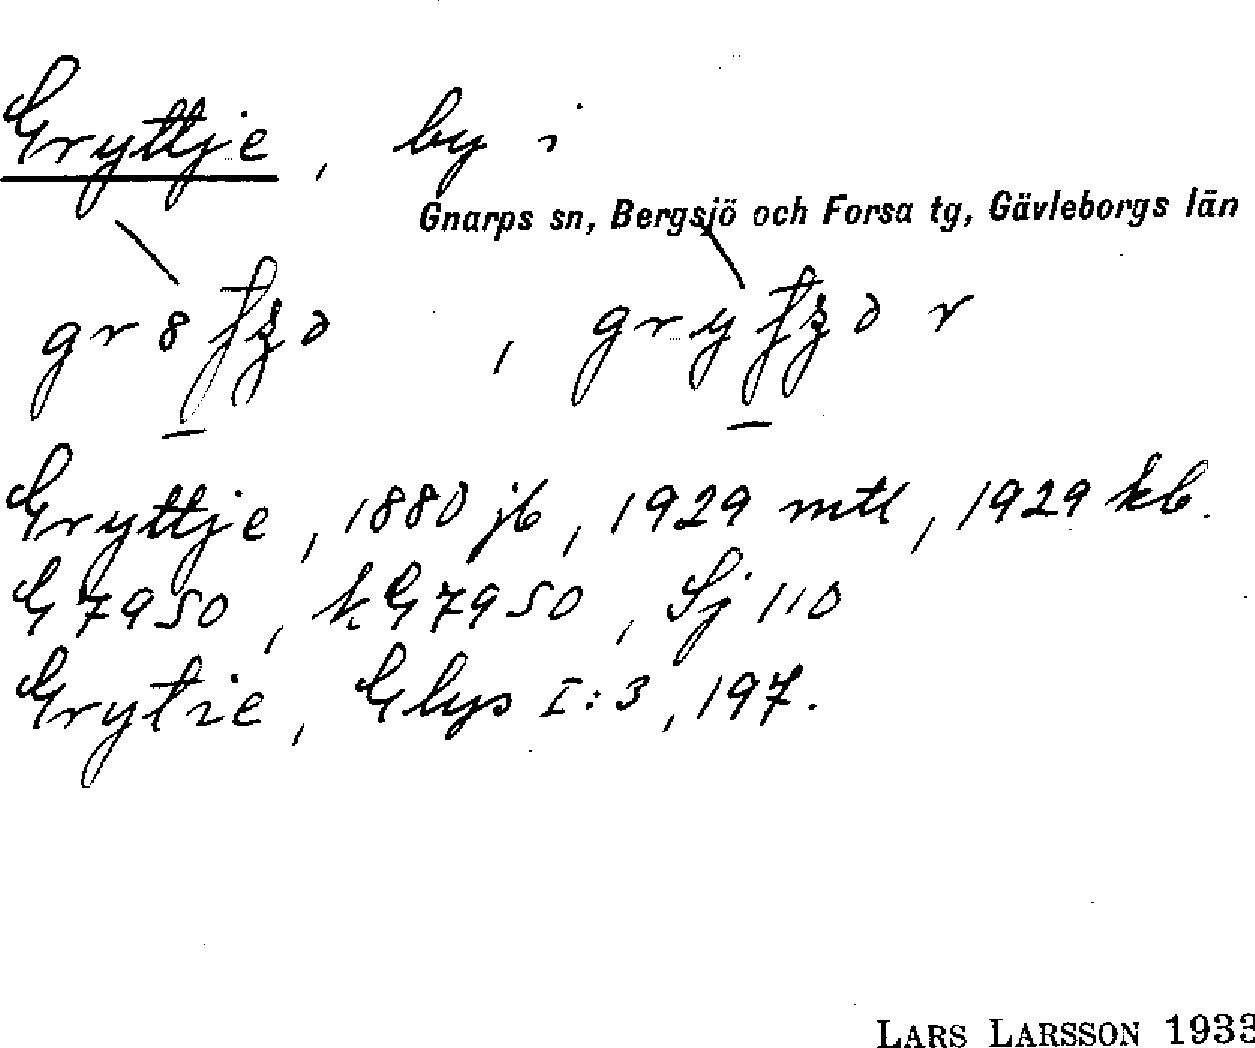 Gryttje, by i
Gnarps sn, Bergsjö och Forsa tg, Gävleborgs län
Gryttje, 1880 jb, 1929 mtl, 1929 kb.
G 7950, kG 7950, Sj 110
Grytie, Glys I:3, 197.
LARS LARSSON 1933